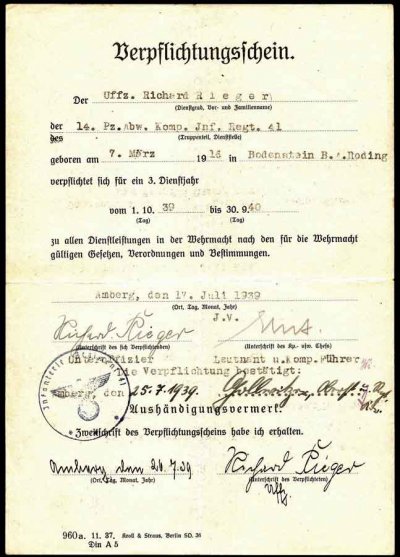 Verpflichtungsschein.
Der Uffz. Richard Rieger
(Dienstgrad, Vor- und Familienname)
der 14. Pz.Abw. Komp. Jnf. Regt. 41
des (Truppenteil, Dienststelle)
geboren am 7. März 1916 in Bodenstein B.A.Roding
verpflichtet sich für ein 3. Dienstjahr
vom 1.10. 39 bis 30.9.40
(Tag) (Tag)
zu allen Dienstleistungen in der Wehrmacht nach den für die Wehrmacht
gültigen Gesetzen, Verordnungen und Bestimmungen.
Amberg, den 17. Juli 1939
(Ort, Tag, Monat, Jahr)
J.V.
Richard Rieger
(Unterschrift des sich Verpflichtenden) (Unterschrift des Kp.- usw. Chefs)
Unteroffizier Leutnant u.Komp.Führer
Die Verpflichtung bestätigt:
Amberg, den 25.7.1939. Oberst
Aushändigungsvermerk.
Zweitschrift des Verpflichtungsscheins habe ich erhalten.
Amberg den 26.7.39 Richard Rieger
(Ort, Tag, Monat, Jahr) (Unterschrift des Verpflichteten)
Uffz.
960a. 11. 37. Kroll & Straus, Berlin SO. 36
Din A 5